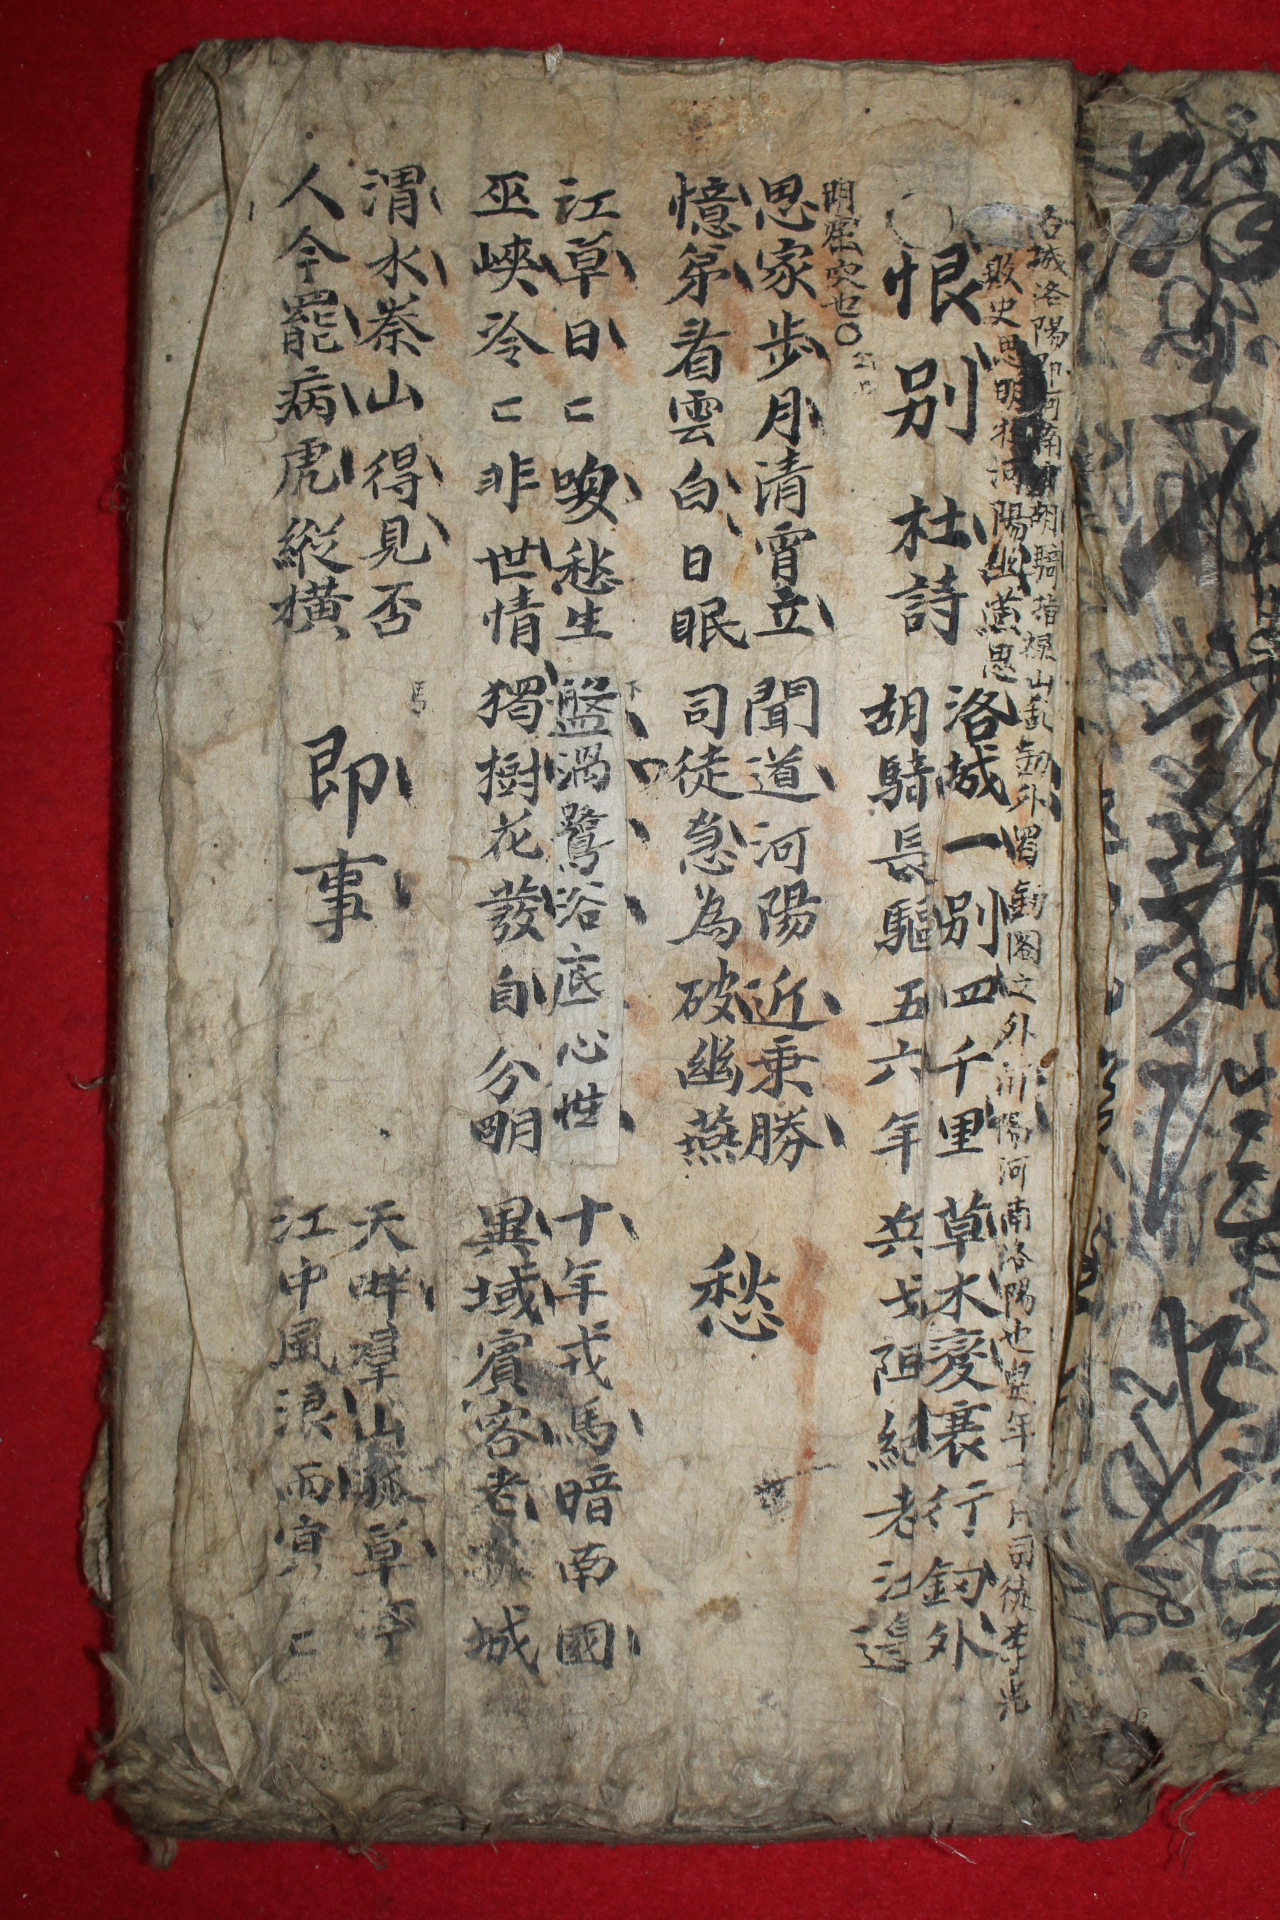 洛城洛陽即河南府胡騎指祿山亂釰外胃釰閣之外河陽河南洛陽也是年月司徒李光
敗史思明於河陽幽燕思
明窟穴也〇
恨別
杜詩
洛城一別四千里
胡騎長驅五六年
草木變衰行釰外
兵戈阻絶老江邉
思家步月清宵立
憶弟看雲白日眠
聞道河陽近乗勝
司徒急為破幽燕
愁
江草日〻喚愁生
巫峽泠〻非世情
盤渦鷺浴底心性
獨樹花發自分明
十年戎馬暗南國
異域賓客老孤城
渭水秦山得見否
人今罷病虎縱橫
即事
天畔羣山孤草亭
江中風浪雨冥〻